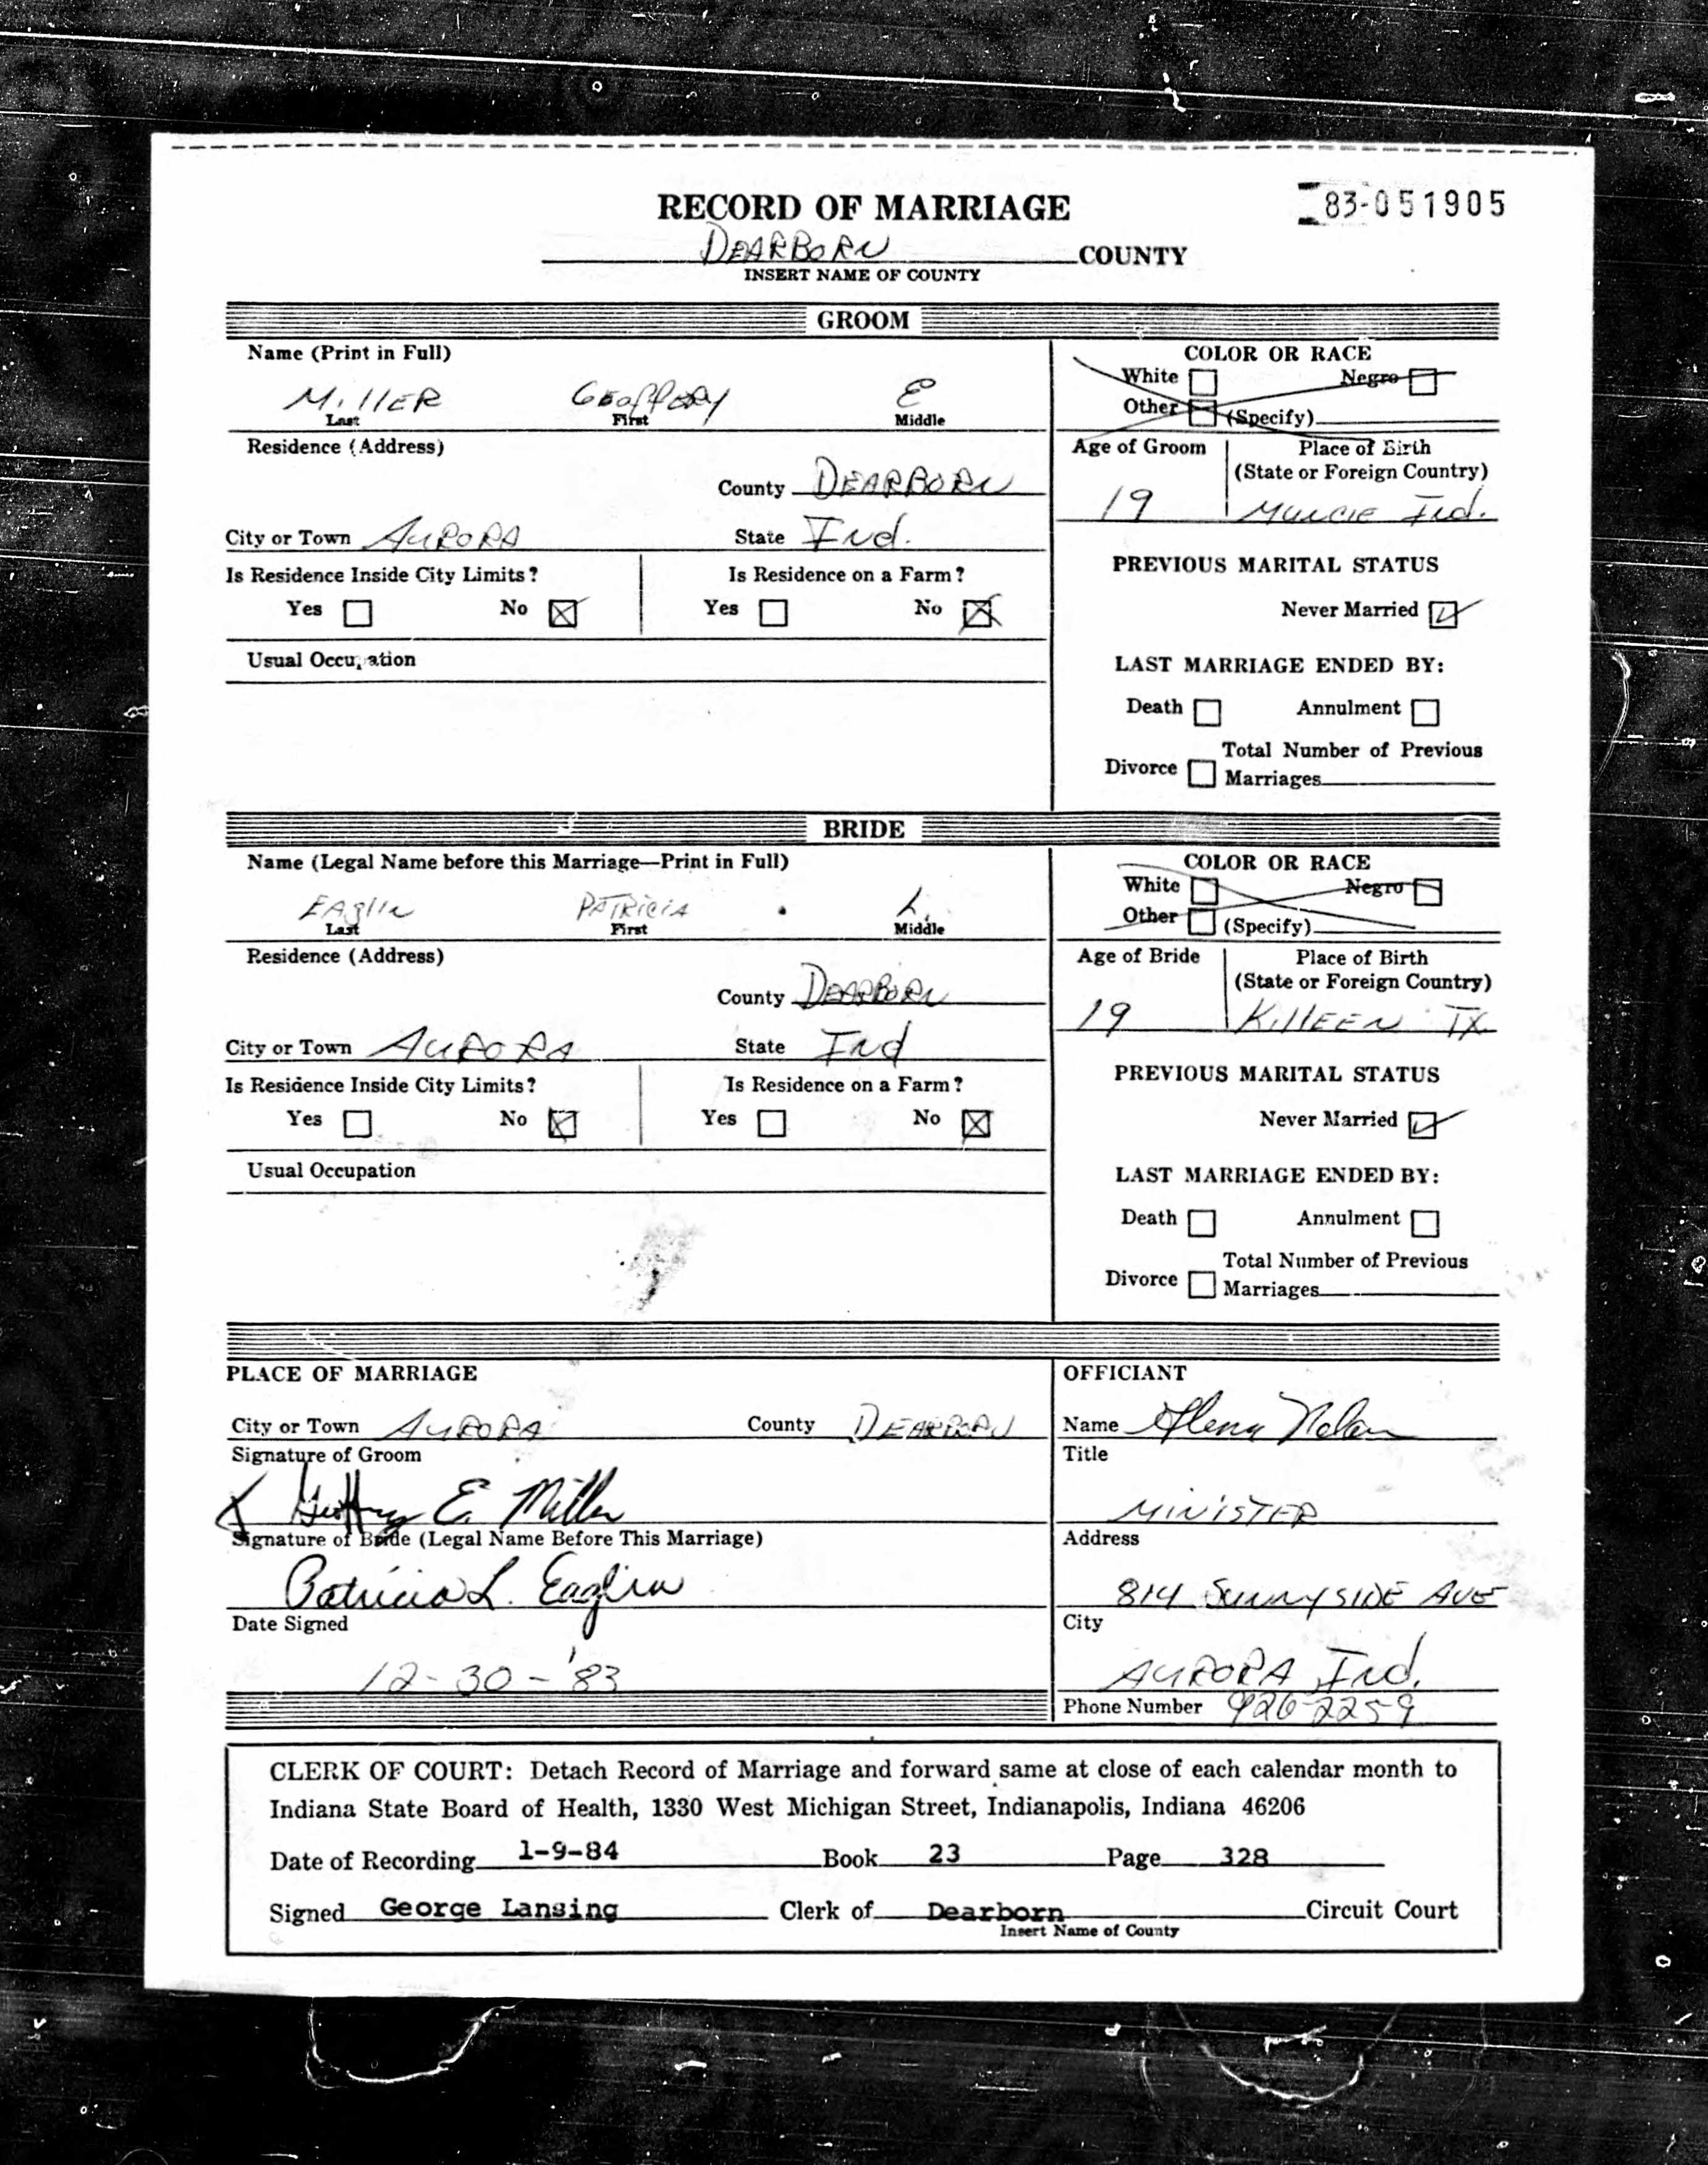 RECORD OF MARRIAGE
83-051905
DEARBORN COUNTY
INSERT NAME OF COUNTY
GROOM
Name (Print in Full)
MillER GEoffERY E
Last First Middle
COLOR OR RACE
White Negro
Other (Specify)
Residence (Address)
County DEARBORN
City or Town AURORA State Ind.
Age of Groom Place of Birth
(State or Foreign Country)
19 Muncie Ind.
Is Residence Inside City Limits? Is Residence on a Farm?
Yes No Yes No
Usual Occupation
PREVIOUS MARITAL STATUS
Never Married
LAST MARRIAGE ENDED BY:
Death Annulment
Divorce Total Number of Previous
Marriages
BRIDE
Name (Legal Name before this Marriage—Print in Full)
EAglin PATRiciA L.
Last First Middle
COLOR OR RACE
White Negro
Other (Specify)
Residence (Address)
County DEARBORN
City or Town AURORA State Ind
Age of Bride Place of Birth
(State or Foreign Country)
19 KillEEN TX
Is Residence Inside City Limits? Is Residence on a Farm?
Yes No Yes No
Usual Occupation
PREVIOUS MARITAL STATUS
Never Married
LAST MARRIAGE ENDED BY:
Death Annulment
Divorce Total Number of Previous
Marriages
PLACE OF MARRIAGE
City or Town AURORA County DEARBORN
Signature of Groom
X Geoffrey E. Miller
Signature of Bride (Legal Name Before This Marriage)
Patricia L. Eaglin
Date Signed
12-30-'83
OFFICIANT
Name Nolan
Title
MINISTER
Address
814 SunnySIDE AVE
City
AURORA Ind.
Phone Number 926-2259
CLERK OF COURT: Detach Record of Marriage and forward same at close of each calendar month to
Indiana State Board of Health, 1330 West Michigan Street, Indianapolis, Indiana 46206
Date of Recording 1-9-84 Book 23 Page 328
Signed George Lansing Clerk of Dearborn Circuit Court
Insert Name of County